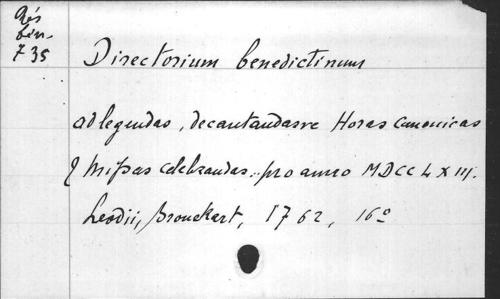 Rés
bén.
735
Directorium benedictinum
ad legendas, decantandasve Horas canonicas
& Missas celebrandas.. pro anno MDCCLXIII.
Leodii, Bronckart, 1762, 16º